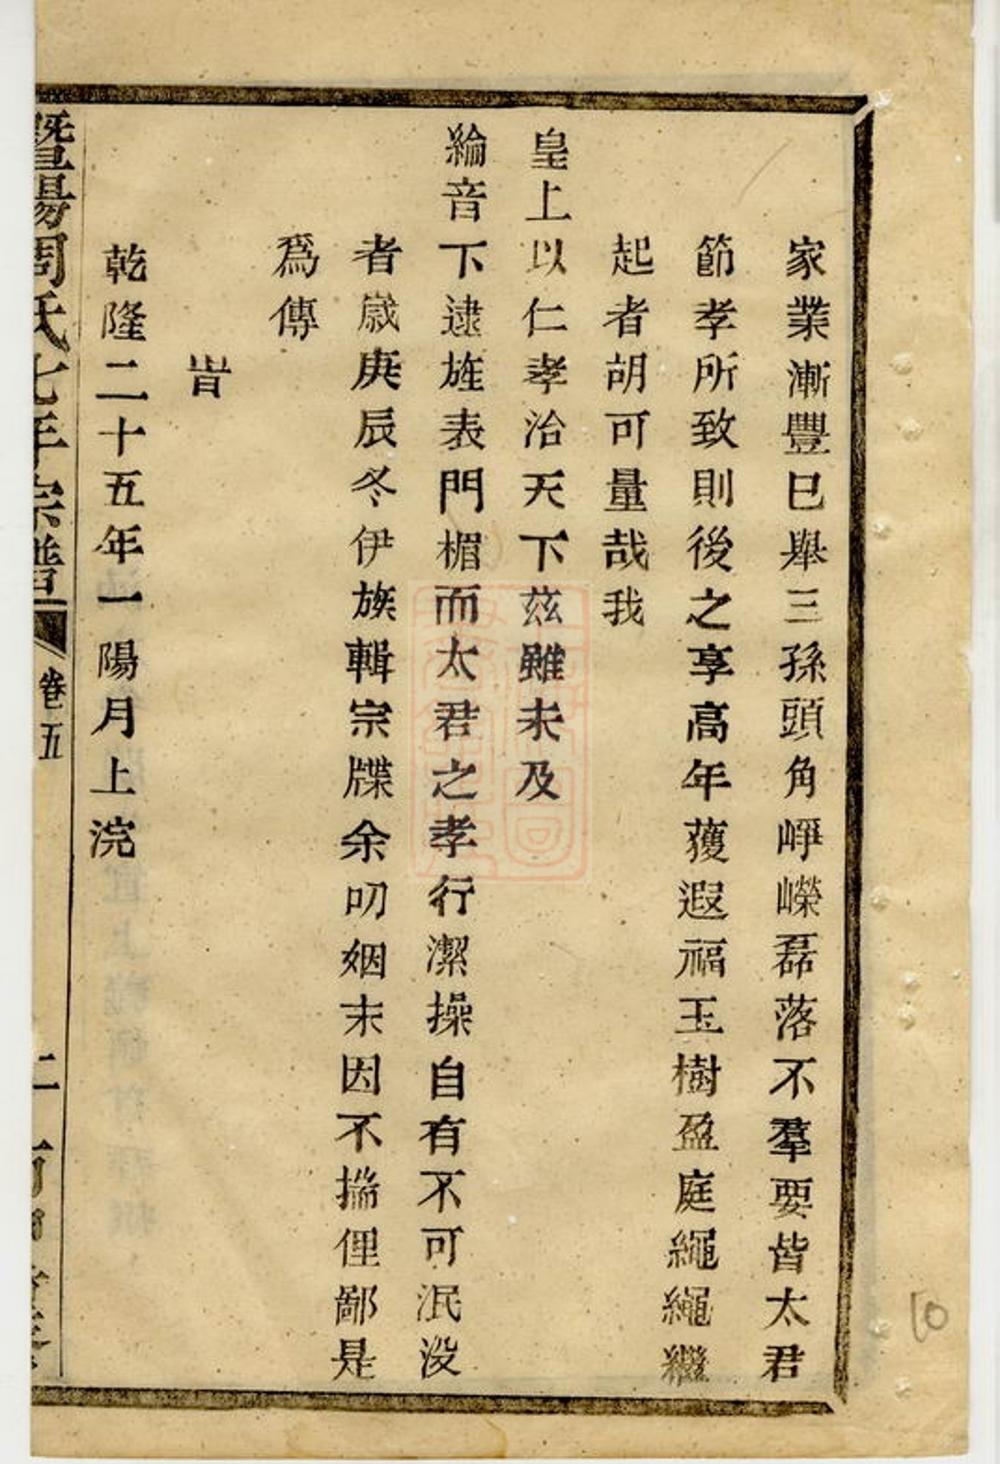 家業漸豐巳舉三孫頭角崢嶸磊落不羣要皆太君
節孝所致則後之享高年獲遐福玉樹盈庭繩繩繼
起者胡可量哉我
皇上以仁孝治天下茲雖未及
綸音下逮旌表門楣而太君之孝行潔操自有不可泯没
者歲庚辰冬伊族輯宗牒余叨姻末因不揣俚鄙是
爲傳
旹
乾隆二十五年一陽月上浣
暨陽周氏七年宗譜
卷五
10